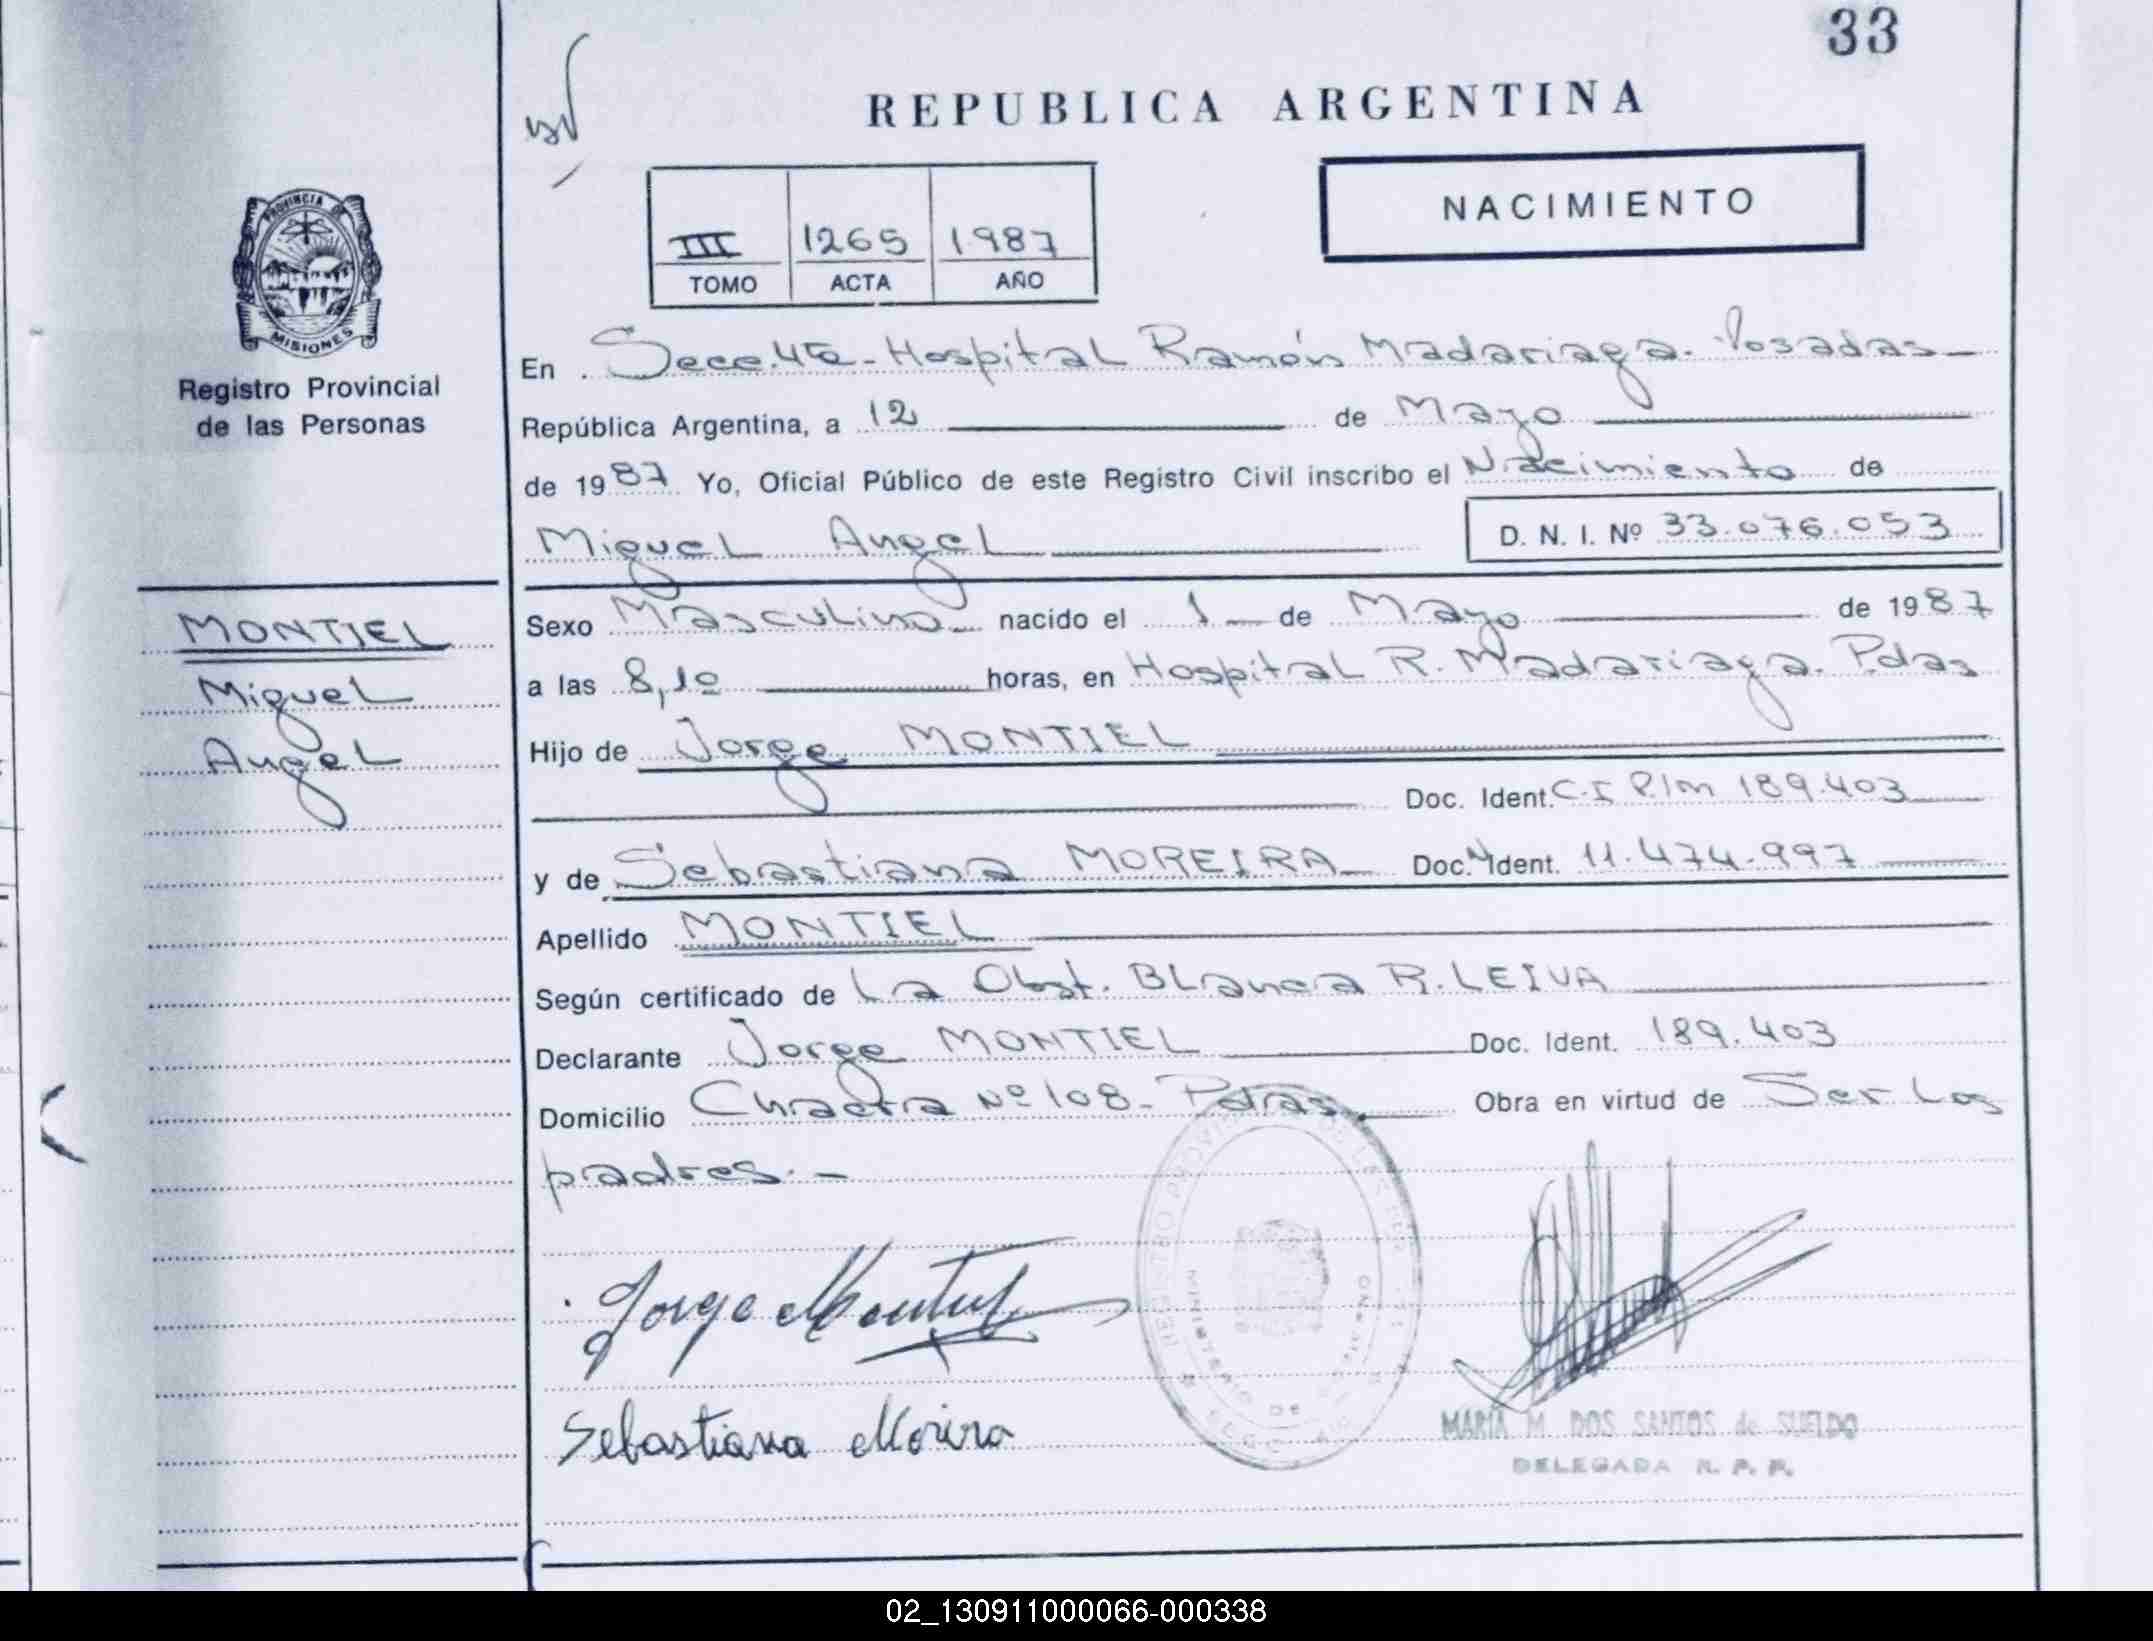 33
REPUBLICA ARGENTINA
NACIMIENTO
III 1265 1987
TOMO ACTA AÑO
PROVINCIA DE
MISIONES
Registro Provincial
de las Personas
En Secc. 4ta - Hospital Ramón Madariaga. Posadas
República Argentina, a 12 de Mayo
de 1987 Yo, Oficial Público de este Registro Civil inscribo el Nacimiento de
Miguel Angel D. N. I. Nº 33.076.053
MONTIEL
Miguel
Angel
Sexo Masculino nacido el 1 de Mayo de 1987
a las 8,10 horas, en Hospital R. Madariaga. Pdas
Hijo de Jorge MONTIEL
Doc. Ident. C.I 189.403
y de Sebastiana MOREIRA Doc. Ident. 11.474.997
Apellido MONTIEL
Según certificado de La Obst. Blanca R. LEIVA
Declarante Jorge MONTIEL Doc. Ident. 189.403
Domicilio Chacra Nº 108 - Pdas Obra en virtud de Ser los
padres. -
Jorge Montiel
Sebastiana Morira
REGISTRO PROVINCIAL DE LAS PERSONAS
MINISTERIO DE
MARIA M. DOS SANTOS de SUELDO
DELEGADA R. P. P.
02_130911000066-000338